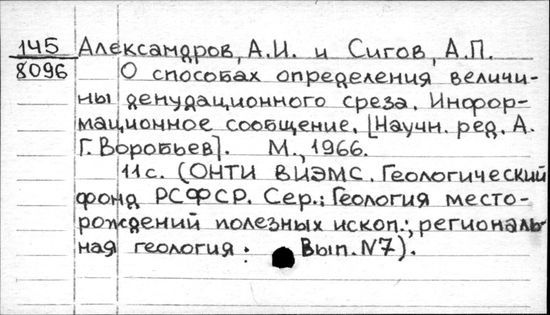 145 Александров, А.И. и Сигов, А.П.
8096 О способах определения величи-
ны денудационного среза. Инфор-
мационное сообщение. [Научн. ред. А.
Г. Воробьев]. М., 1966.
11 с. (ОНТИ ВИЭМС. Геологический
фонд РСФСР. Сер.: Геология место-
рождений полезных ископ.; региональ-
ная геология: Вып. N7).